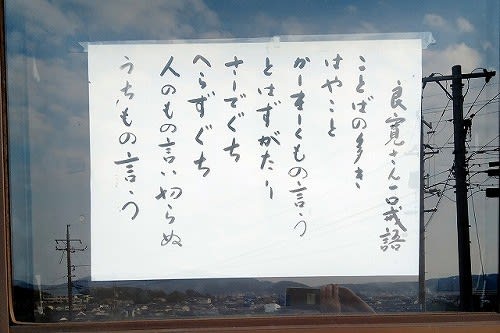 良寛さん 口戒語
ことばの多き
はやこと
かしましくもの言う
とはずがたり
さしでぐち
へらずぐち
人のもの言い切らぬ
うちもの言う